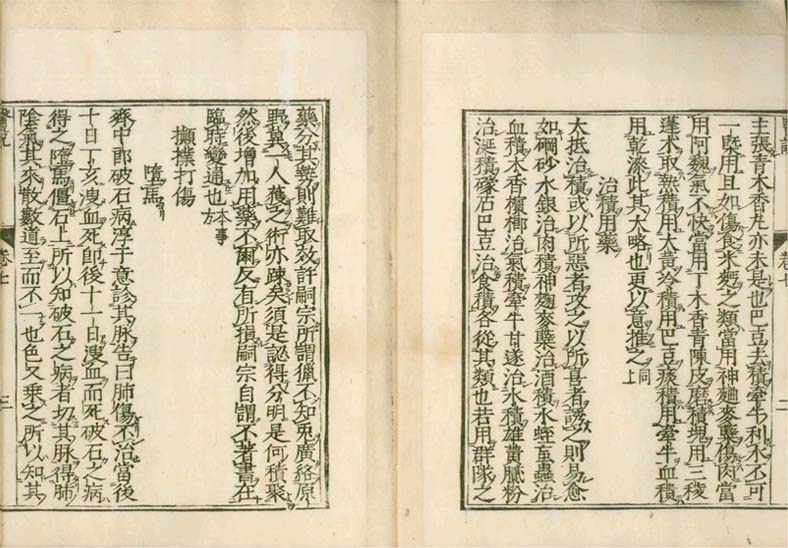 主張青木香丸亦未是也巴豆去積牽牛利水不可
一既用且如傷食米麵之類當用神麯麥糵傷肉當
用阿魏氣不快當用丁木香青陳皮磨積塊用三稜
蓬朮取熱積用大黃冷積用巴豆痰積用牽牛血積
用乾漆此其大略也更以意推之同上
治積用藥
大抵治積或以所惡者攻之以所喜者誘之則易愈
如硇砂水銀治肉積神麯麥糵治酒積水蛭䖟蟲治
血積木香檳榔治氣積牽牛甘遂治水積雄黃膩粉
治涎積礞石巴豆治食積各從其類也若用群隊之
卷七
二
藥分其勢則難取效許嗣宗所謂獵不知兎廣絡原
野冀一人獲之術亦疎矣須是認得分明是何積聚
然後增加用藥不爾反有所損嗣宗自謂不著書在
臨時變通也本事方
攧撲打傷
墮馬
齊中郎破石病淳于意診其脉告曰肺傷不治當後
十日丁亥溲血死即後十一日溲血而死破石之病
得之墮馬僵石上所以知破石之病者切其脉得肺
陰氣其來散數道至而不一也色又乗之所以知其
醫說
卷七
三